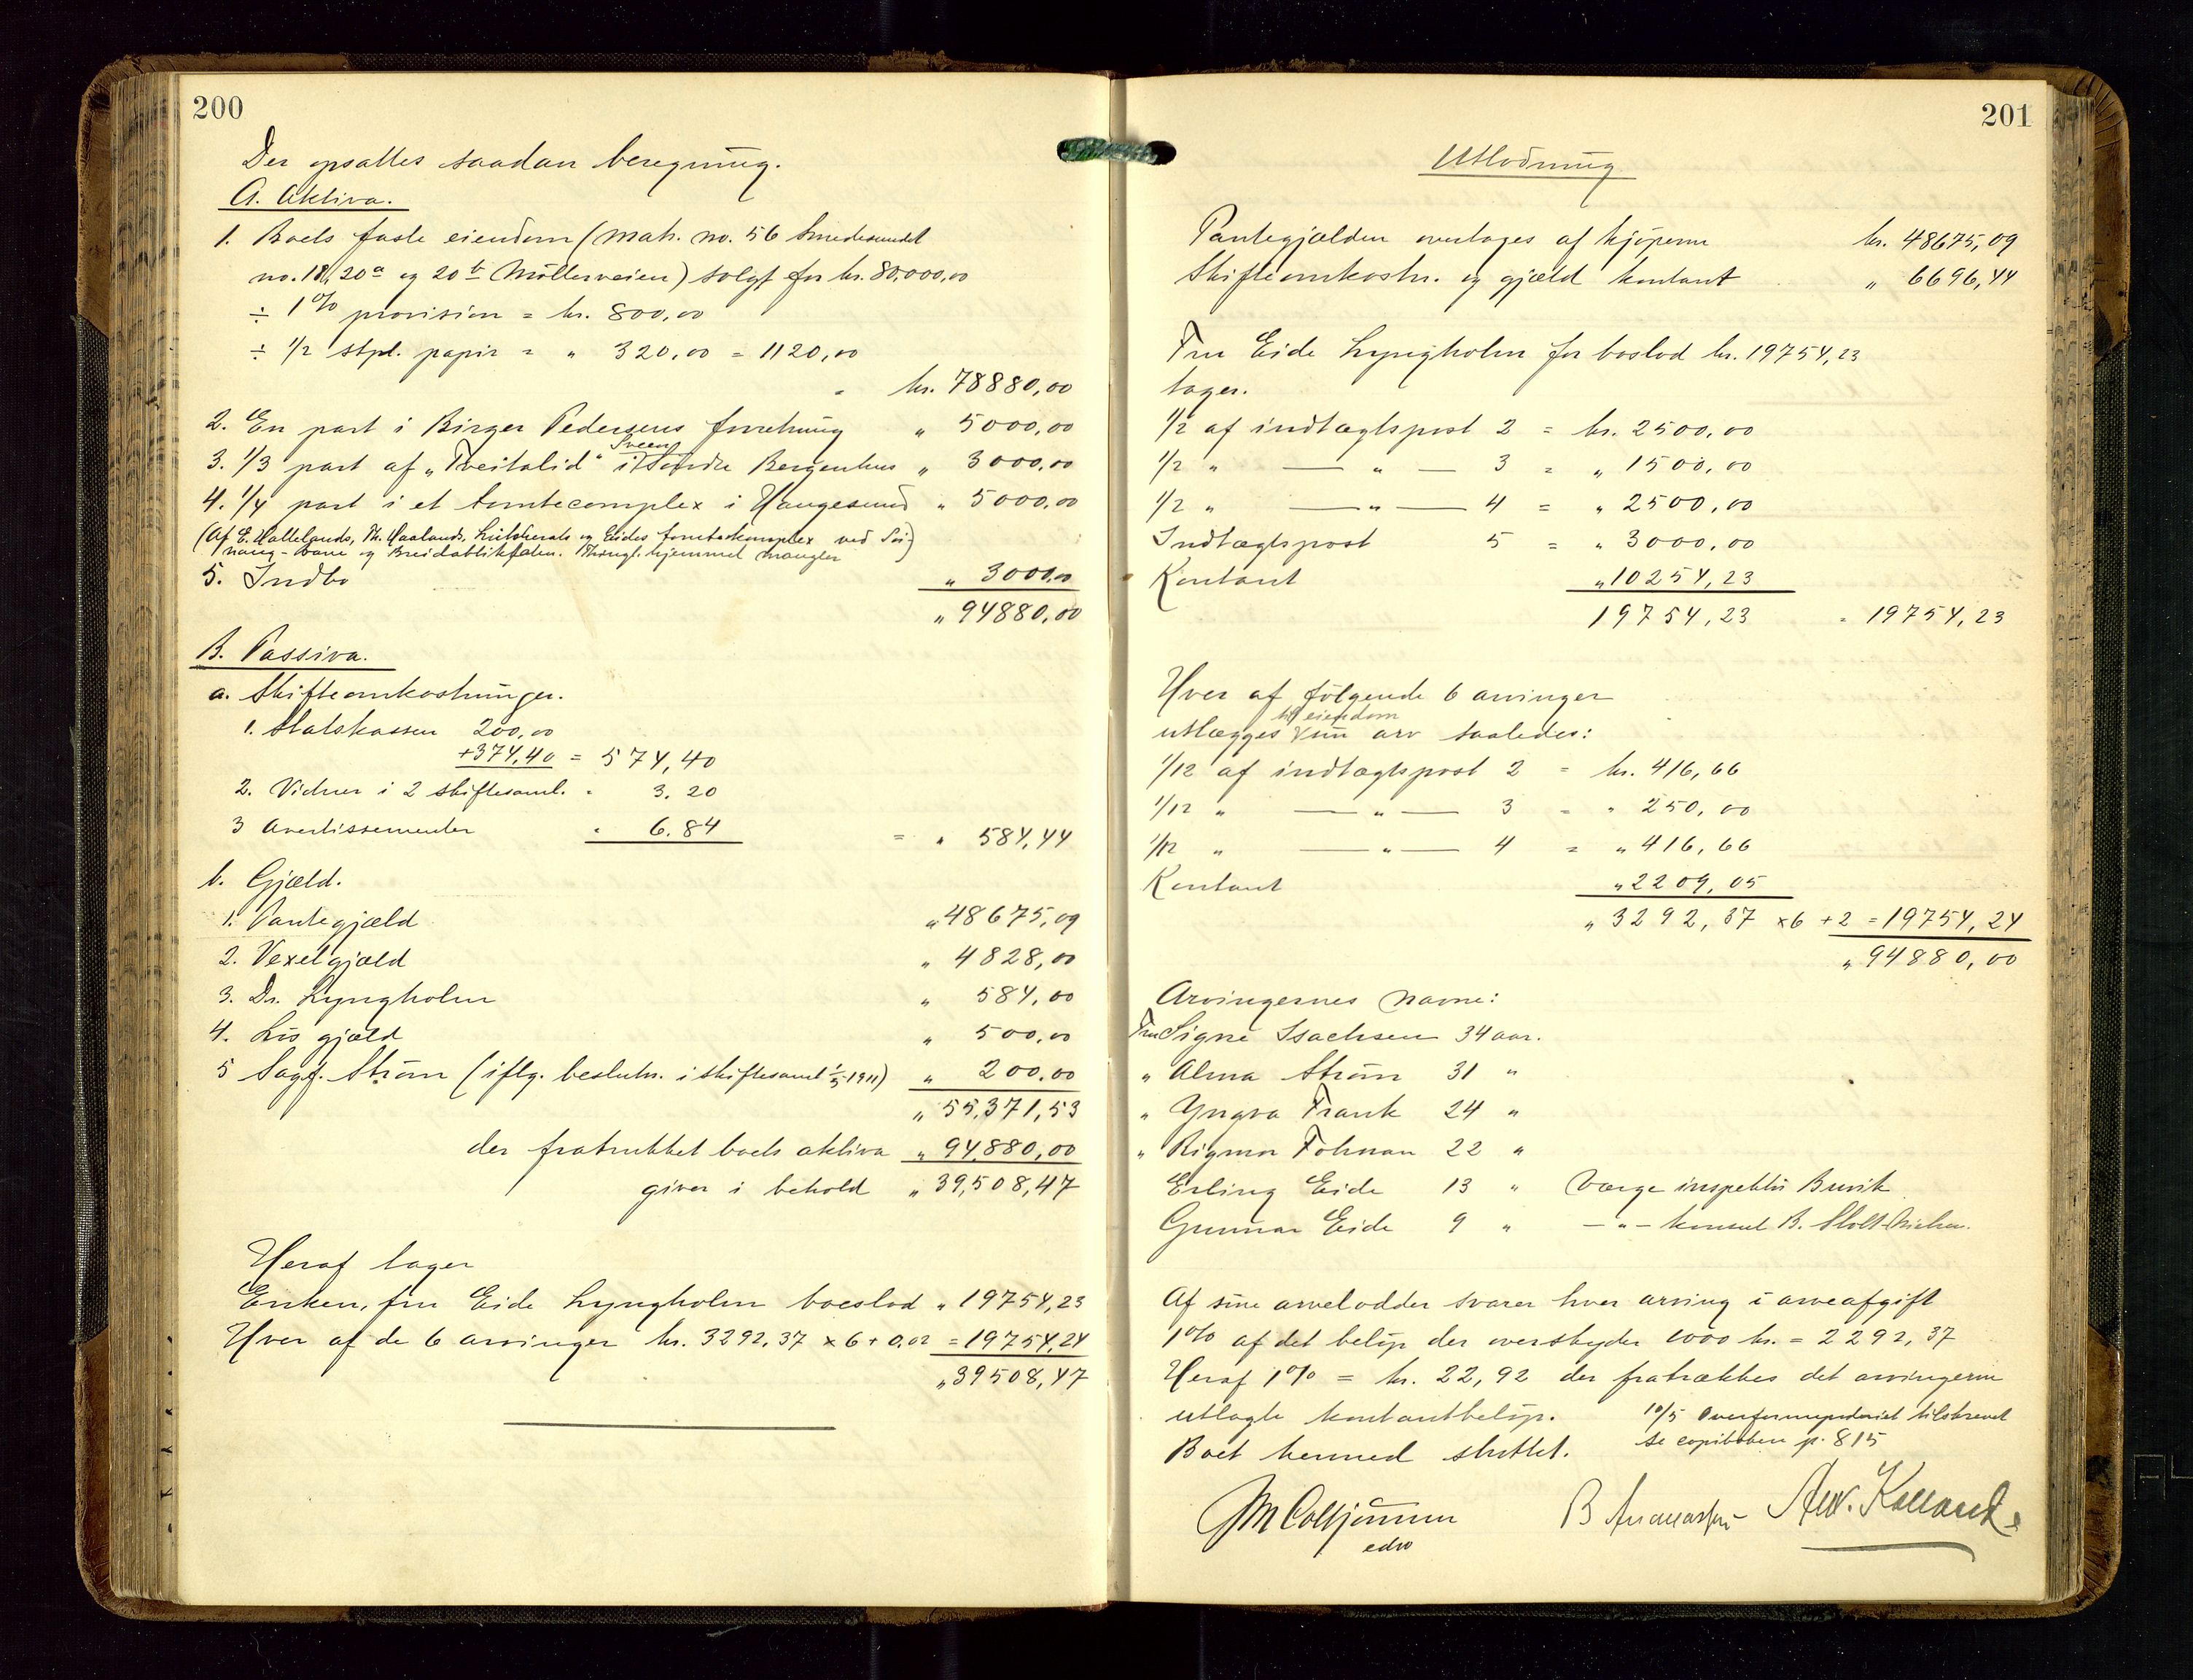 200
Der opsattes saadan beregning.
A. Aktiva.
1. Boets faste eiendom (Matr. no. 56 Smedesundet
no. 18, 20a og 20b Möllerveien) solgt for kr. 80,000,00
÷ 1% provision = kr. 800,00
÷ 1/2 stpl. papir = " 320,00 = 1120,00
= kr. 78880,00
2. En part i Birger Pedersens forretning " 5000,00
Sveen
3. 1/3 part af "Tveitalid" i Söndre Bergenhus " 3000,00
4. 1/4 part i et tomtecomplex i Haugesund " 5000,00
(Af E. Hallelands, Th. Haalands, og Eides tomtekomplex ved
bane og Breidablikgaten. Thingl. hjemmel mangler
5. Indbo " 3000,00
" 94880,00
B. Passiva.
a. Skifteomkostninger.
1. Statskassen 200,00
+374,40 = 574,40
2. Vidner i 2 skiftesaml. " 3.20
3 Avertissementer " 6.84 = " 584,44
b. Gjæld.
1. Pantegjæld " 48675,09
2. Vexelgjæld " 4828,00
3. Dr. Lyngholm " 584,00
4. Lös gjæld " 500,00
5 Sagf. Ström (iflg. beslutn. i skiftesaml 1/5 1911) " 200,00
" 55,371,53
der fratrukket boets aktiva " 94,880,00
giver i behold " 39,508,47
Heraf tager
Enken, fru Eide Lyngholm boeslod " 19754,23
Hver af de 6 arvinger kr. 3292,37 x 6 + 0,02 = 19754,24
" 39508,47
201
Utlodning
Pantegjælden overtages af kjöperne kr. 48675,09
Skifteomkostn. og gjæld kontant " 6696,44
Fru Eide Lyngholm for boslod kr. 19754,23
tager.
1/2 af indtægtspost 2 = kr. 2500,00
1/2 " — " — 3 = " 1500,00
1/2 " — " — 4 = " 2500,00
Indtægtspost 5 = " 3000,00
Kontant " 10254,23
19754,23 = 19754,23
Hver af fölgende 6 arvinger
til eiendom
utlægges sin arv saaledes:
1/12 af indtægtspost 2 = kr. 416,66
1/12 " — " — 3 = " 250,00
1/12 " — " — 4 = " 416,66
Kontant " 2209,05
" 3292,37 x6 +2 = 19754,24
" 94880,00
Arvingernes navne:
Fru Signe Isachsen 34 aar.
" Alma Ström 31 "
" Yngva Frank 24 "
" Rigmor Fohman 22 "
Erling Eide 13 " Værge inspektör Buvik
Gunnar Eide 9 " — " — konsul B. Stolt-Nielsen.
Af sine arvelodder svarer hver arving i arveafgift
1% af det belöp der overskyder 1000 kr. = 2292,37
Heraf 1% = kr. 22,92 der fratrækkes det arvingerne
utlagte kontantbelöp. 10/5 Overformynderiet tilskrevet
Boet hermed sluttet. se copiboken p. 815
edro